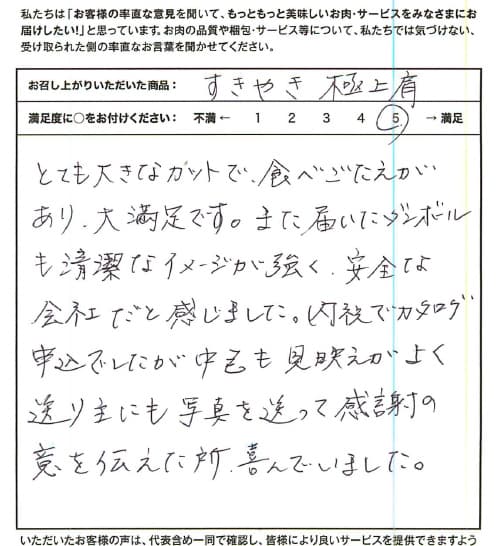 私たちは「お客様の率直な意見を聞いて、もっともっと美味しいお肉・サービスをみなさまにお
届けしたい!」と思っています。お肉の品質や梱包・サービス等について、私たちでは気づけない、
受け取られた側の率直なお言葉を聞かせてください。
お召し上がりいただいた商品： すきやき 極上肩
満足度に○をお付けください： 不満 ← 1 2 3 4 5 → 満足
とても大きなカットで、食べごたえが
あり、大満足です。また届いたダンボール
も清潔なイメージが強く、安全な
会社だと感じました。内祝でカタログ
申込でしたが中も見映えがよく
送り主にも写真を送って感謝の
意を伝えた所、喜んでいました。
いただいたお客様の声は、代表含め一同で確認し、皆様により良いサービスを提供できますよう